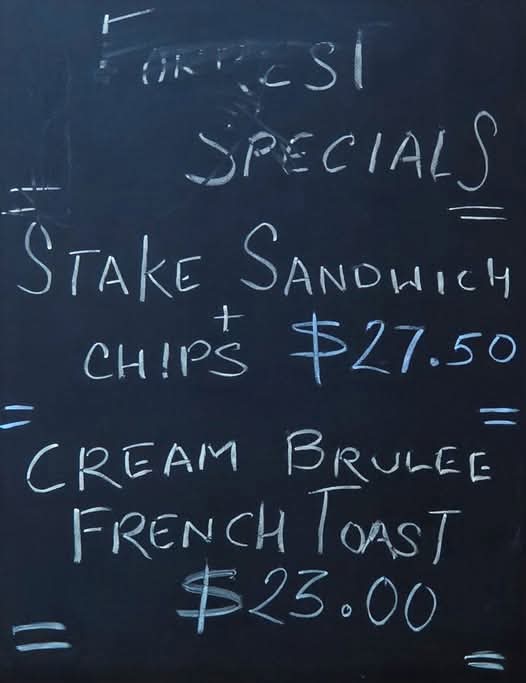 FORREST
SPECIALS
STAKE SANDWICH
+
CHIPS $27.50
CREAM BRULEE
FRENCH TOAST
$23.00